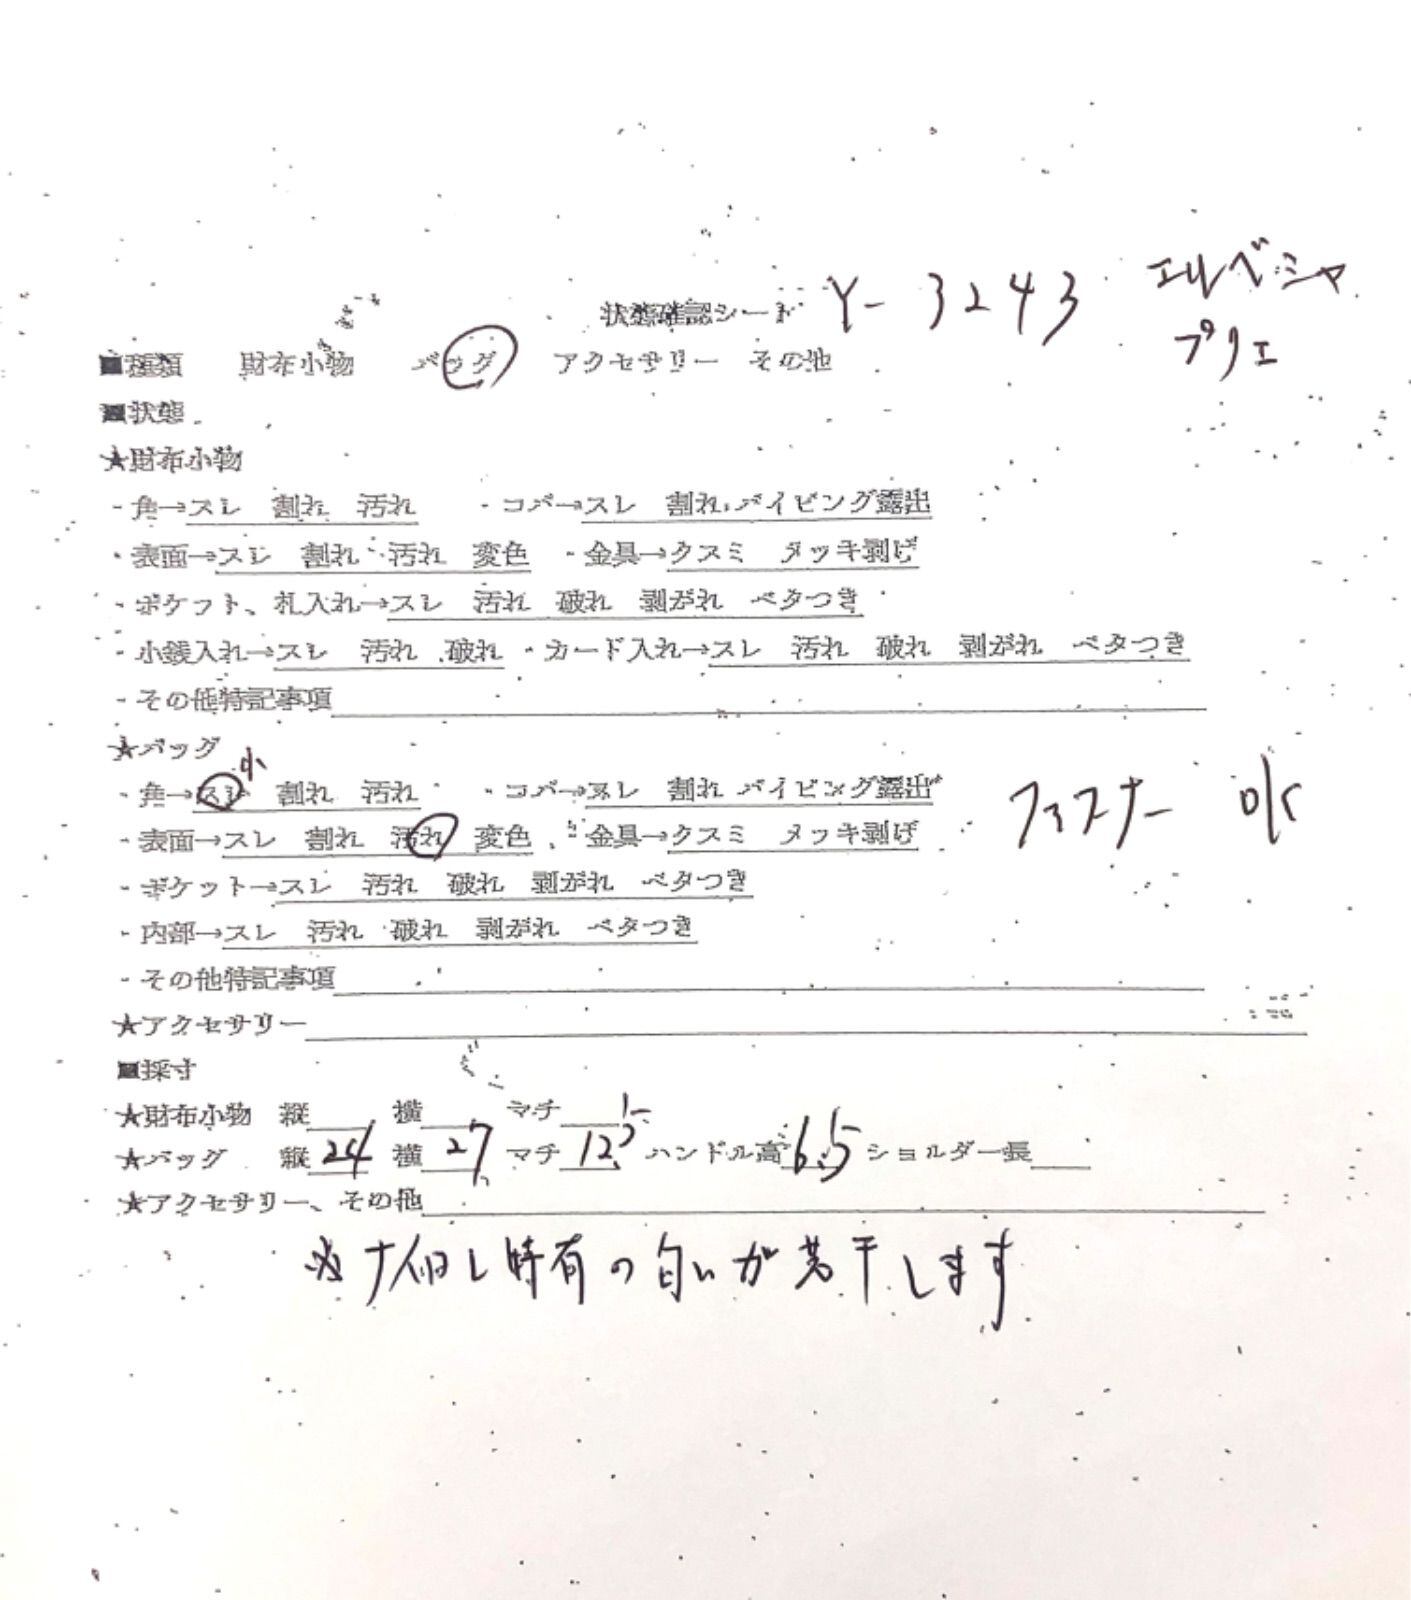 状態確認シート Y-3243 エルベシャ
プリエ
■種類 財布小物 バッグ アクセサリー その他
■状態
★財布小物
・角→スレ 割れ 汚れ ・コバ→スレ 割れ パイピング露出
・表面→スレ 割れ 汚れ 変色 ・金具→クスミ メッキ剥げ
・ポケット、札入れ→スレ 汚れ 破れ 剥がれ ベタつき
・小銭入れ→スレ 汚れ 破れ ・カード入れ→スレ 汚れ 破れ 剥がれ ベタつき
・その他特記事項
★バッグ
・角→スレ 小 割れ 汚れ ・コバ→スレ 割れ パイピング露出
・表面→スレ 割れ 汚れ 変色 ・金具→クスミ メッキ剥げ ファスナー ok
・ポケット→スレ 汚れ 破れ 剥がれ ベタつき
・内部→スレ 汚れ 破れ 剥がれ ベタつき
・その他特記事項
★アクセサリー
■採寸
★財布小物 縦 横 マチ
★バッグ 縦 24 横 27 マチ 12.5 ハンドル高 6.5 ショルダー長
★アクセサリー、その他
※ナイロン特有の匂いが若干します